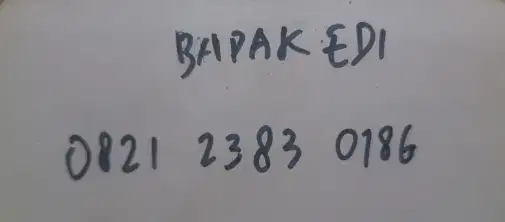 BAPAK EDI
0821 2383 0186